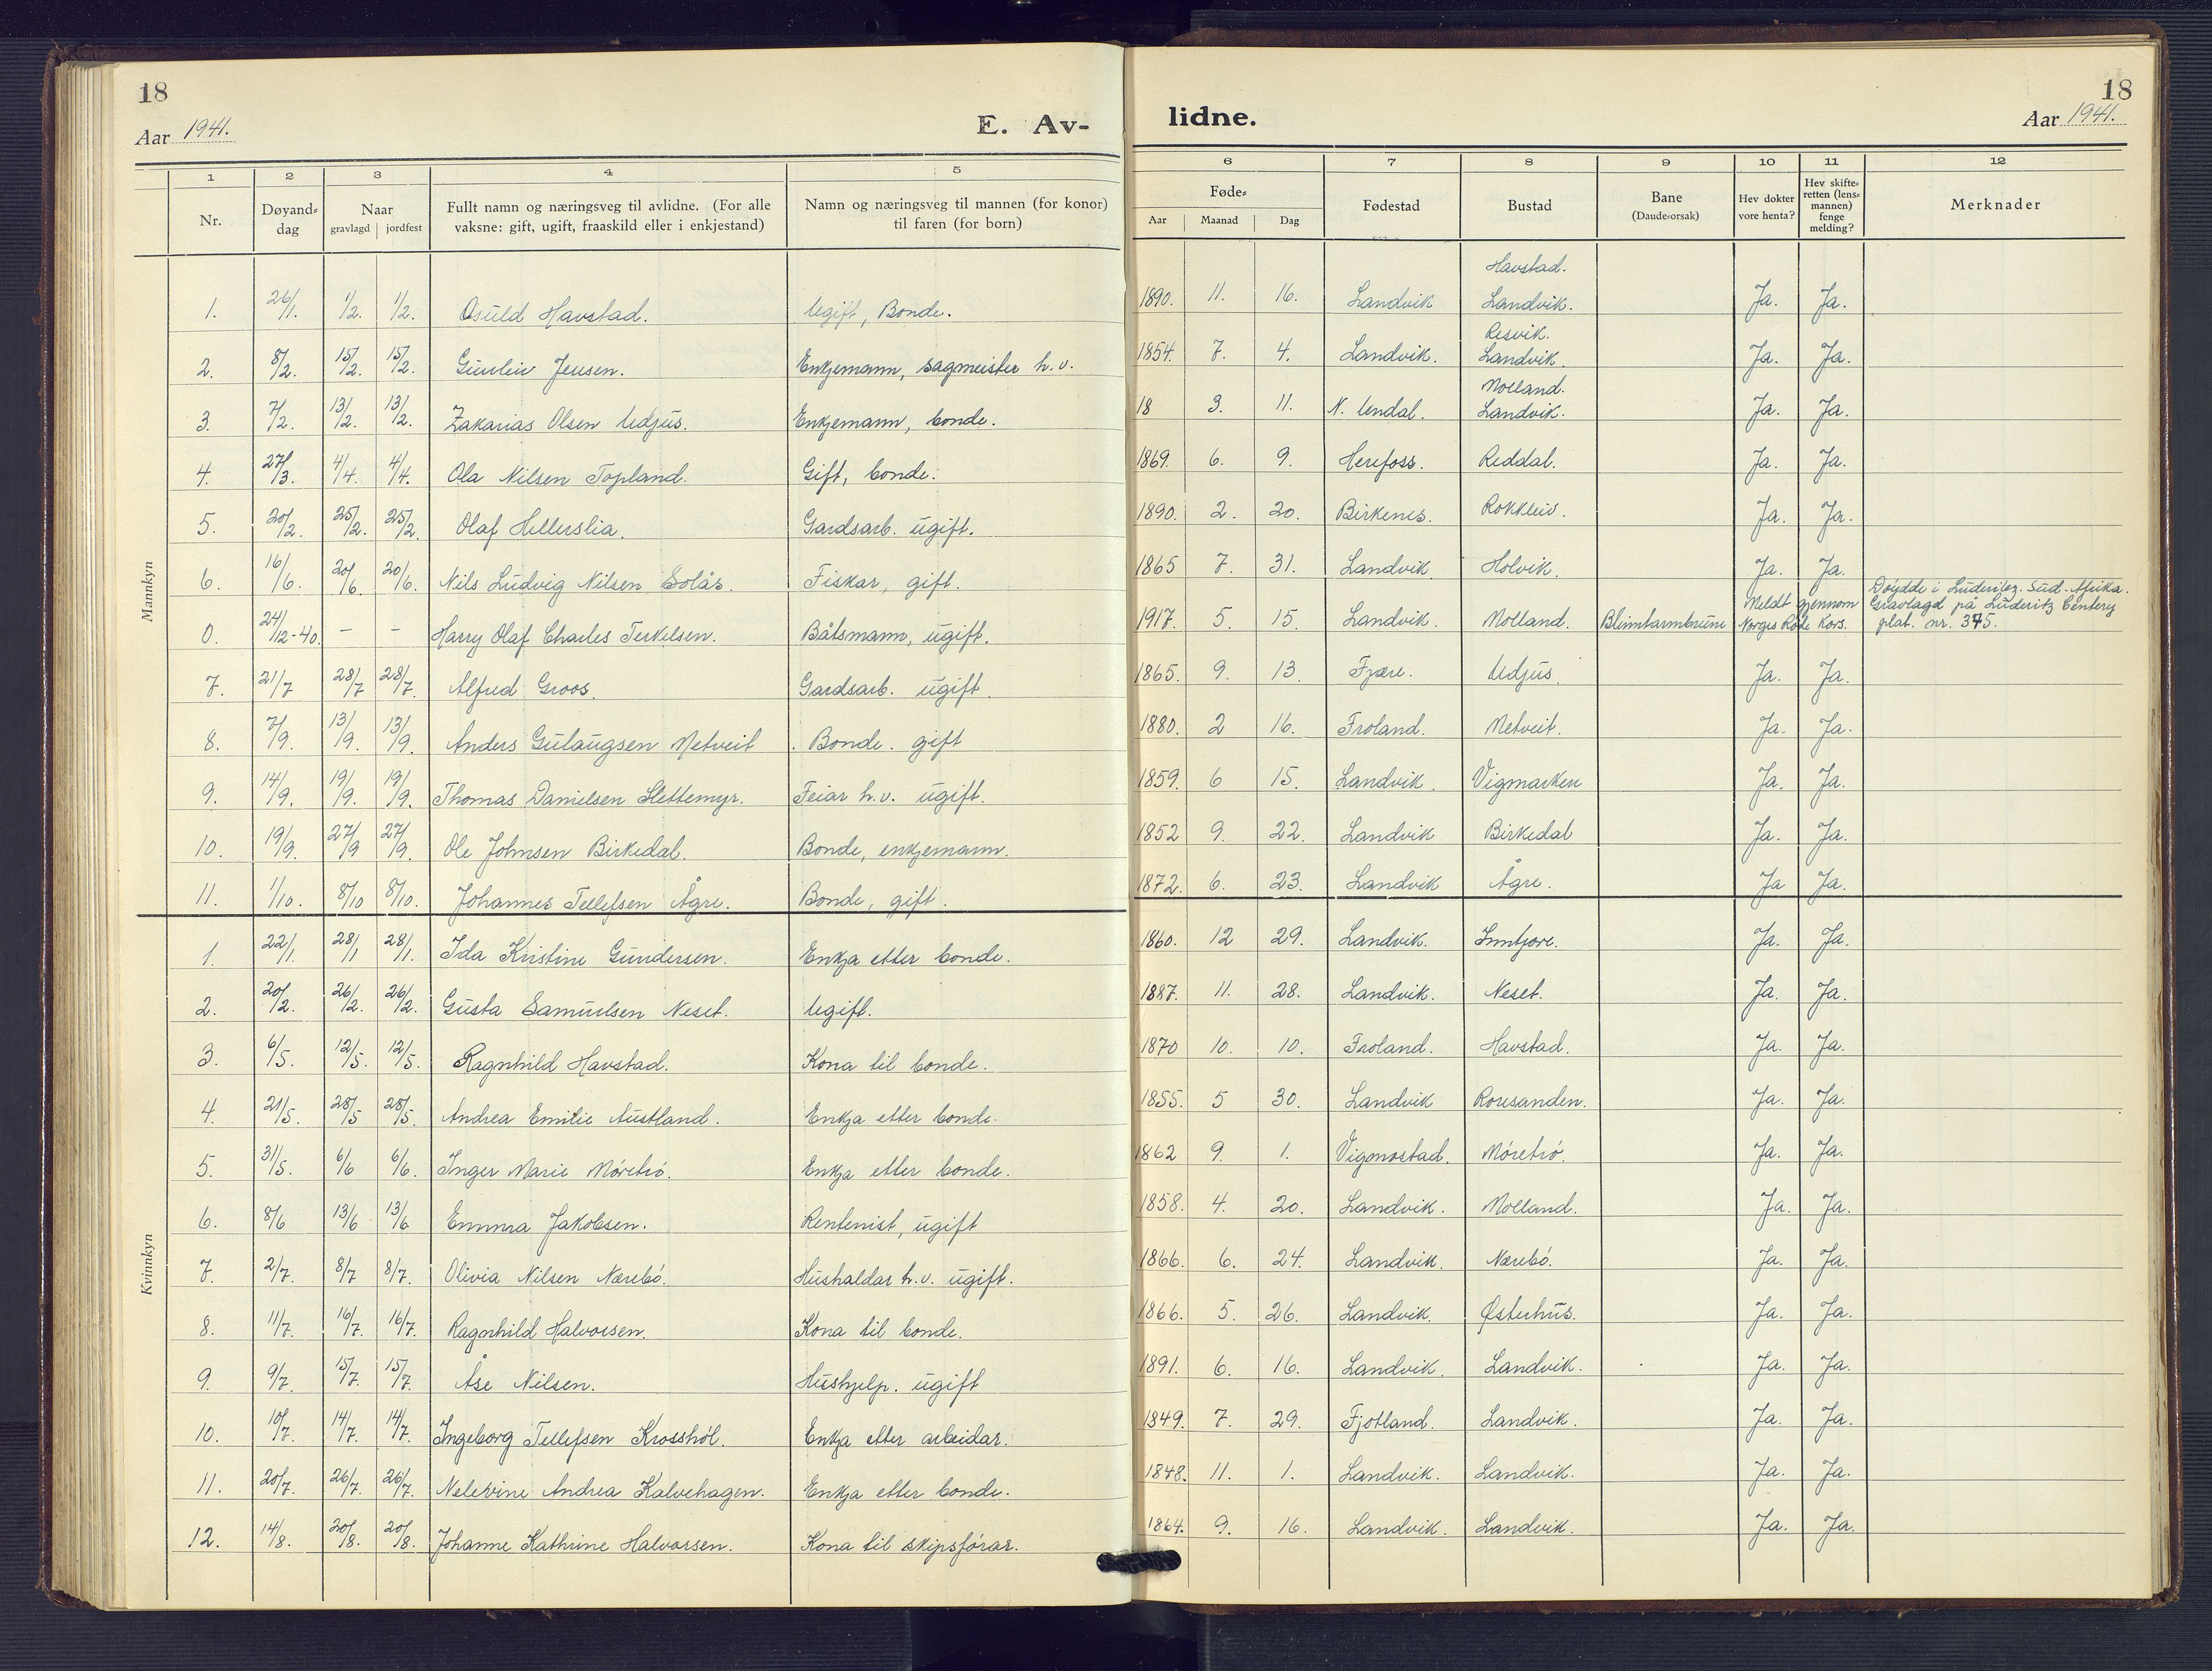 18
Aar 1941.
E. Av-
lidne.
18
Aar 1941.
1 2 3 4 5 6 7 8 9 10 11 12
Nr.
Døyand-
dag
Naar
gravlagd | jordfest
Fullt namn og næringsveg til avlidne. (For alle
vaksne: gift, ugift, fraaskild eller i enkjestand)
Namn og næringsveg til mannen (for konor)
til faren (for born)
Føde-
Aar Maanad Dag
Fødestad
Bustad
Bane
(Daude-orsak)
Hev dokter
vore henta?
Hev skifte-
retten (lens-
mannen)
fenge
melding?
Merknader
Mannkyn
Havstad.
1. 26/1. 1/2. 1/2. Osuld Havstad. Ugift, Bonde. 1890. 11. 16. Landvik Landvik. Ja. Ja.
Resvik.
2. 8/2. 15/2. 15/2. Gunleiv Jensen. Enkjemann, sagmeister h.v. 1854. 7. 4. Landvik. Landvik. Ja. Ja.
Molland.
3. 7/2. 13/2. 13/2. Zakarias Olsen Udjus. Enkjemann, bonde. 18 3. 11. N. Undal. Landvik. Ja. Ja.
4. 27/3. 4/4. 4/4. Ola Nilsen Topland. Gift, bonde. 1869. 6. 9. Herefoss. Reddal. Ja. Ja.
5. 20/2. 25/2. 25/2. Olaf Hellerslia. Gardsarb. ugift. 1890. 2. 20. Birkenes. Rokkleiv. Ja. Ja.
6. 16/6. 20/6. 20/6. Nils Ludvig Nilsen Solås. Fiskar, gift. 1865 7. 31. Landvik. Holvik. Ja. Ja.
Døydde i Luderitz. Süd. Afrika.
Meldt gjennom Gravlagd på Luderitz Centery
0. 24/12-40. - - Harry Olaf Charles Terkelsen. Båtsmann, ugift. 1917. 5. 15. Landvik. Molland. Blinntarmbrune Norges Røde Kors. plat. nr. 375.
7. 21/7 28/7 28/7. Alfred Groos. Gardsarb. ugift. 1865. 9. 13. Fjære. Udjus. Ja. Ja.
8. 7/9. 13/9. 13/9. Anders Gulaugsen Metveit. Bonde. gift 1880. 2 16. Froland. Metveit. Ja. Ja.
9. 14/9. 19/9. 19/9. Thomas Danielsen Slettemyr. Feiar h.v. ugift. 1859. 6 15. Landvik. Vigmarken Ja. Ja.
10. 19/9. 27/9 27/9. Ole Johnsen Birkedal. Bonde, enkjemann. 1852 9. 22. Landvik Birkedal Ja. Ja.
11. 1/10. 8/10 8/10. Johannes Tellefsen Ågre. Bonde, gift. 1872. 6. 23. Landvik Ågre. Ja Ja.
Kvinnkyn
1. 22/1. 28/1 28/1. Ida Kristine Gundersen. Enkja etter bonde. 1860. 12 29. Landvik. Inntjore. Ja. Ja.
2. 20/2. 26/2. 26/2. Gusta Samuelsen Neset. Ugift. 1887. 11. 28. Landvik. Neset. Ja. Ja.
3. 6/5. 12/5. 12/5. Ragnhild Havstad. Kona til bonde. 1870 10. 10. Froland. Havstad. Ja. Ja.
4. 21/5. 28/5 28/5. Andrea Emilie Austland. Enkja etter bonde. 1855. 5 30. Landvik Roresanden. Ja. Ja.
5. 31/5. 6/6 6/6. Inger Marie Móretró. Enkja etter bonde. 1862 9. 1. Vigmostad. Móretró. Ja. Ja.
6. 8/6 13/6 13/6 Emma Jakobsen. Rentenist, ugift 1858. 4. 20. Landvik. Molland. Ja. Ja.
7. 2/7. 8/7 8/7. Olivia Nilsen Nærebó. Hushaldar h.v. ugift. 1866. 6. 24. Landvik. Nærebó. Ja. Ja.
8. 11/7. 16/7. 16/7. Ragnhild Halvorsen. Kona til bonde. 1866. 5. 26. Landvik. Østerhus. Ja. Ja.
9. 9/7. 15/7. 15/7. Åse Nilsen. Hushjelp. ugift 1891. 6. 16. Landvik. Landvik. Ja. Ja.
10. 10/7. 14/7. 14/7. Ingeborg Tellefsen Krosshól. Enkja etter arbeidar. 1849. 7. 29. Fjotland. Landvik. Ja. Ja.
11. 20/7. 26/7. 26/7. Nelevine Andrea Kalvehagen. Enkja etter bonde. 1848. 11. 1. Landvik. Landvik. Ja. Ja.
12. 14/8. 20/8. 20/8. Johanne Kathrine Halvorsen. Kona til skipsfórar. 1864. 9. 16. Landvik. Landvik. Ja. Ja.